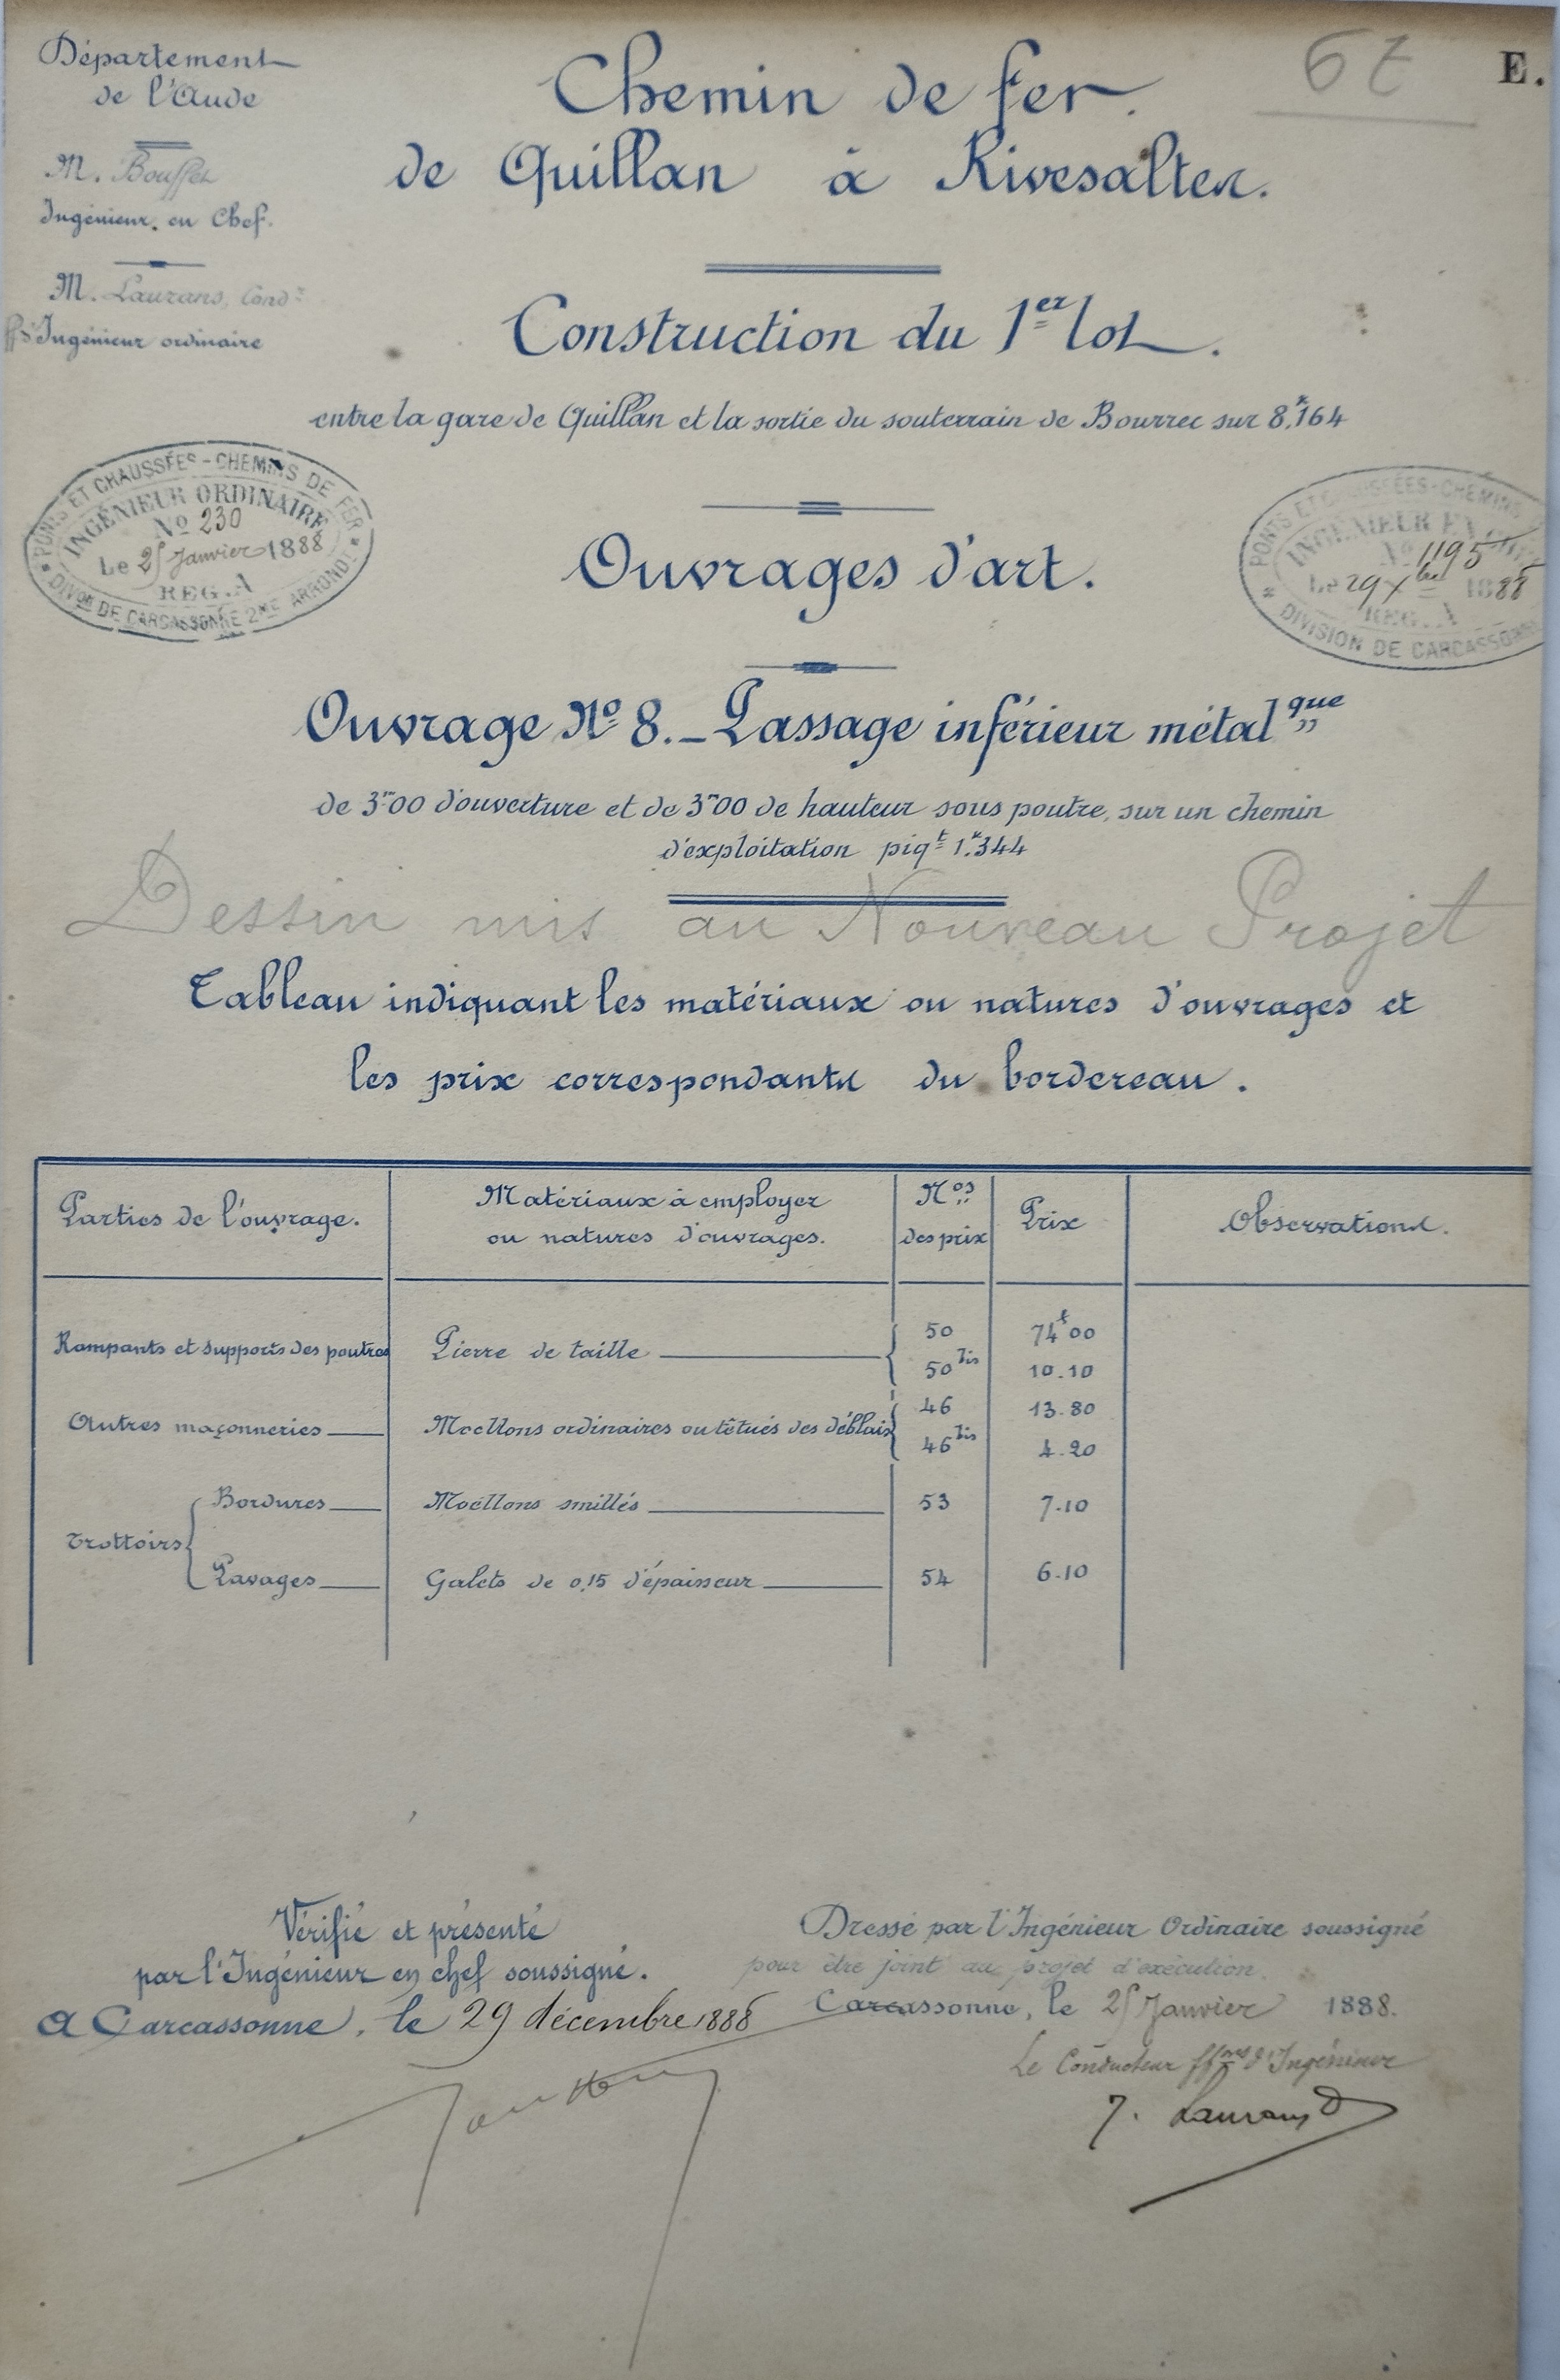 Département
de l'Aude
M. Bouffet
Ingénieur en Chef.
M. Laurans, Cond.r
ff.s d'Ingénieur ordinaire
6
E.
Chemin de fer
de Quillan à Rivesaltes.
Construction du 1er lot.
entre la gare de Quillan et la sortie du souterrain de Bourrec sur 8.k164
PONTS ET CHAUSSÉES - CHEMINS DE FER
INGÉNIEUR ORDINAIRE
No 230
Le 25 Janvier 1888
REG. A
DIVon DE CARCASSONNE 2ME ARRONDt
PONTS ET CHAUSSÉES - CHEMINS
INGÉNIEUR EN
No 1195
Le 29 Xbre 1888
REG. A
DIVISION DE CARCASSONNE
Ouvrages d'art.
Ouvrage No 8. _ Passage inférieur métalque
de 3m00 d'ouverture et de 3m00 de hauteur sous poutre, sur un chemin
d'exploitation piqt 1.k344
Dessin mis au Nouveau Projet
Tableau indiquant les matériaux ou natures d'ouvrages et
les prix correspondants du bordereau.
Parties de l'ouvrage. Matériaux à employer ou natures d'ouvrages. Nos des prix Prix Observations.
Rampants et supports des poutres Pierre de taille 50 74f00
50bis 10.10
Autres maçonneries Moellons ordinaires ou têtués des déblais 46 13.80
46bis 4.20
Trottoirs Bordures Moëllons smillés 53 7.10
Pavages Galets de 0,15 d'épaisseur 54 6.10
Vérifié et présenté
par l'Ingénieur en chef soussigné.
A Carcassonne, le 29 décembre 1888
Dressé par l'Ingénieur Ordinaire soussigné
pour être joint au projet d'exécution.
Carcassonne, le 25 Janvier 1888.
Le Conducteur ffons d'Ingénieur
J. Laurans